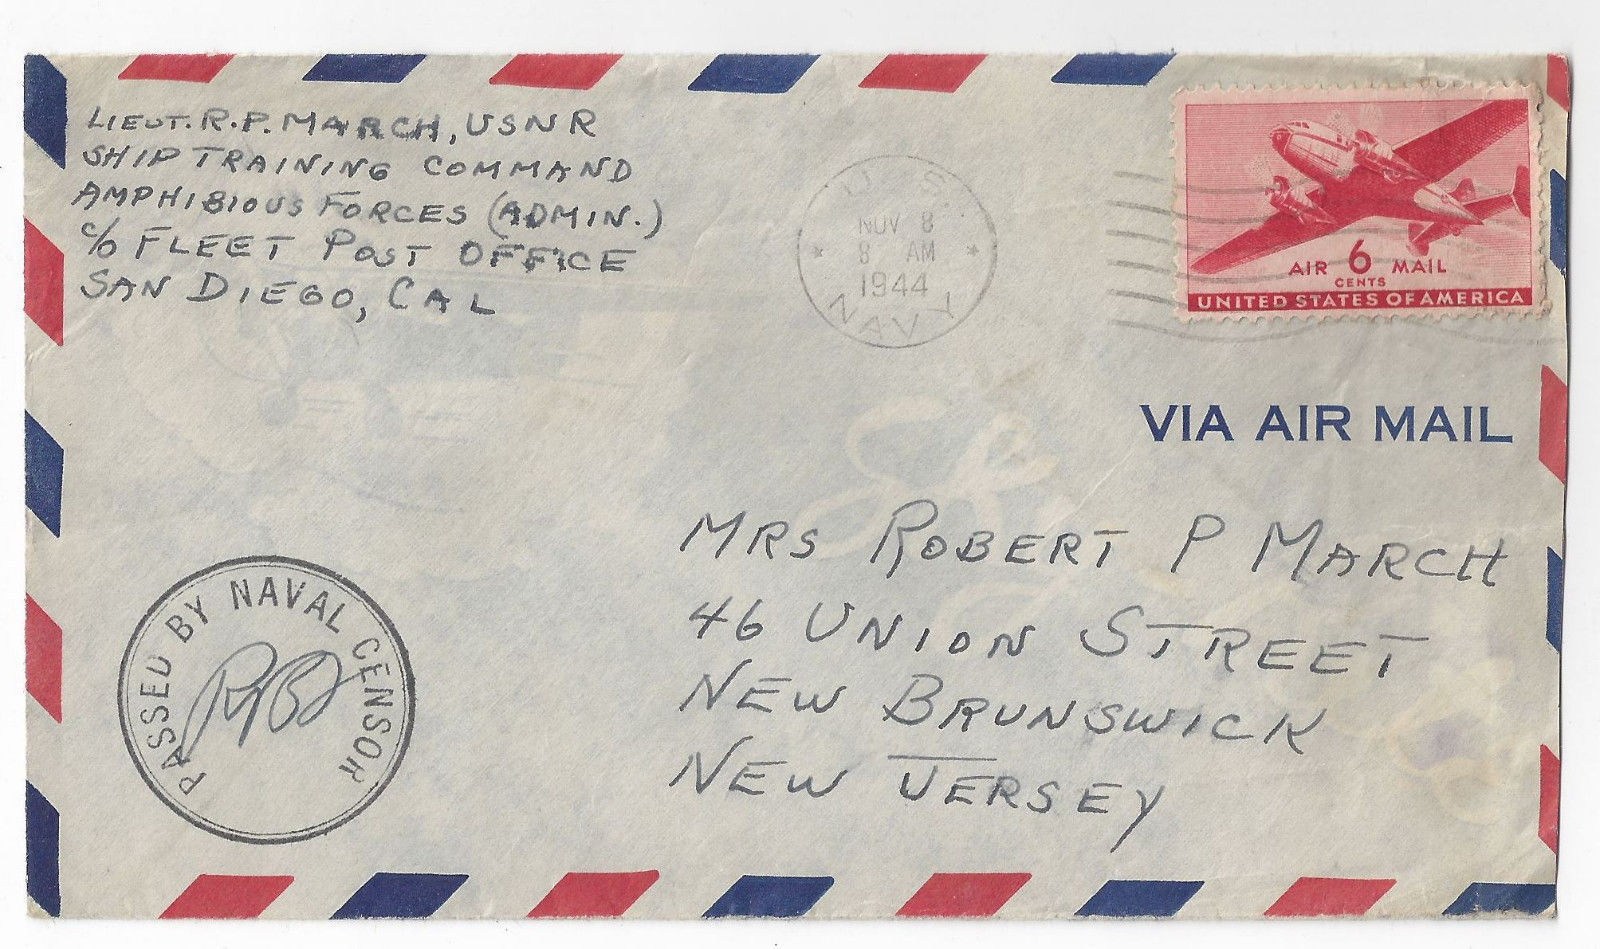 LIEUT. R. P. MARCH, USNR
SHIP TRAINING COMMAND
AMPHIBIOUS FORCES (ADMIN.)
c/o FLEET POST OFFICE
SAN DIEGO, CAL
U. S.
NOV 8
8 AM
1944
NAVY
AIR 6 MAIL
CENTS
UNITED STATES OF AMERICA
VIA AIR MAIL
MRS ROBERT P MARCH
46 UNION STREET
NEW BRUNSWICK
NEW JERSEY
PASSED BY NAVAL CENSOR